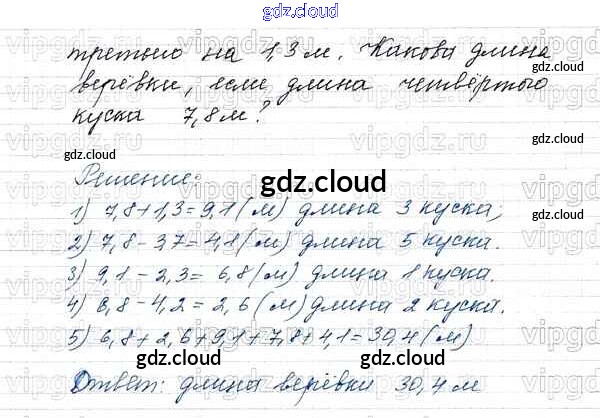 gdz.cloud gdz.cloud
третьего на 1,3 м. Какова длина
gdz.cloud
верёвки, если длина четвёртого
куска 7,8 м?
gdz.cloud
gdz.cloud gdz.cloud
Решение:
gdz.cloud
1) 7,8+1,3=9,1 (м) длина 3 куска;
2) 7,8-3,7=4,1 (м) длина 5 куска.
gdz.cloud
3) 9,1-2,3=6,8 (м) длина 1 куска.
gdz.cloud
4) 6,8-4,2=2,6 (м) длина 2 куска.
5) 6,8+2,6+9,1+7,8+4,1=30,4 (м)
gdz.cloud gdz.cloud
Ответ: длина верёвки 30,4 м
gdz.cloud